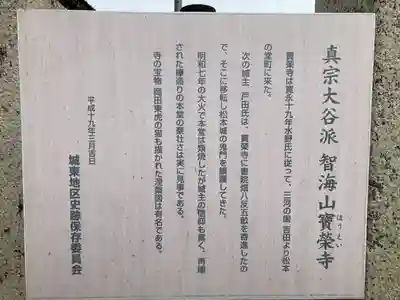 真宗大谷派 智海山寶榮寺
ほうえい
寳榮寺は寛永十年水野氏に従って、三河の国 吉田より松本
の堂町に来た。
次の城主 戸田氏は、寳榮寺に書院畑八反五畝を寄進したの
で、そこに移転し松本城の鬼門を鎮護してきた。
明和七年の大火で本堂は類焼したが城主の信仰も篤く、再建
された欅造りの本堂の豪壮さは実に見事である。
寺の宝物 岡田東虎の猫も描かれた涅槃図は有名である。
平成十九年三月吉日
城東地区史跡保存委員会